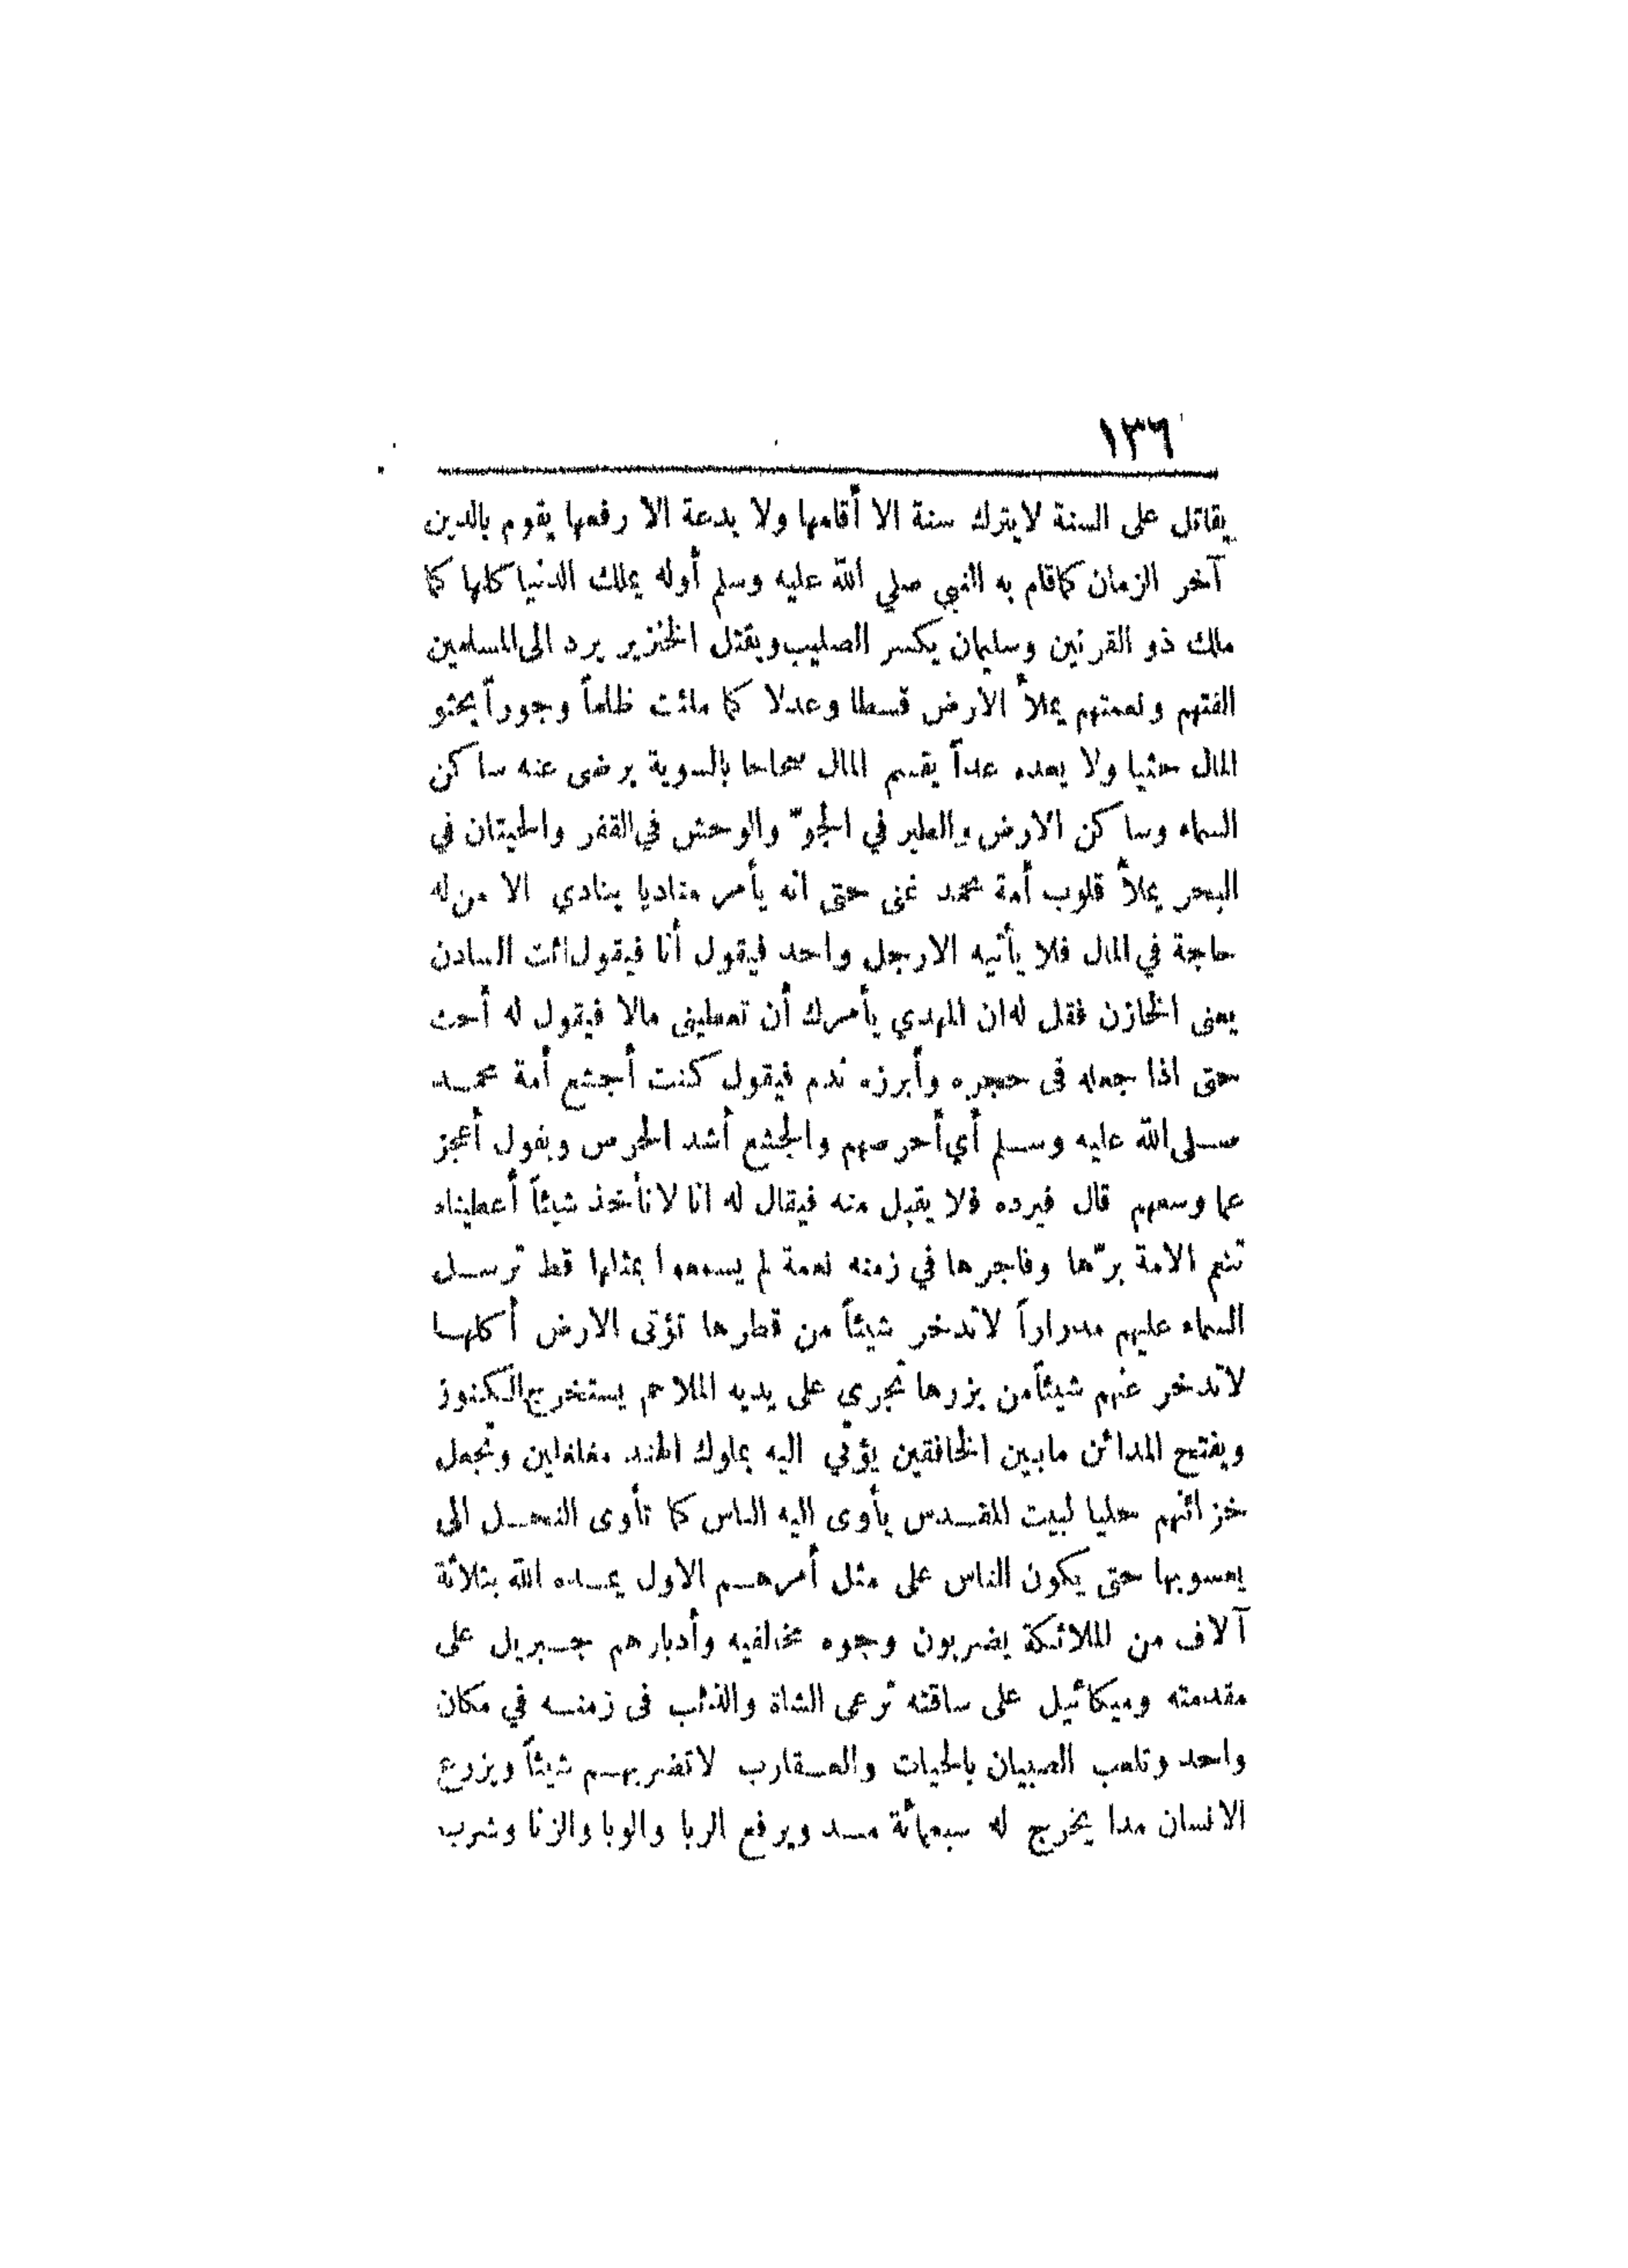 ١٣٦
يقاتل على السنة لا يترك سنة الا أقامها ولا بدعة الا رفعها يقوم بالدين
آخر الزمان كما قام به النبي صلي الله عليه وسلم أوله يملك الدنيا كلها كما
ملك ذو القرنين وسليمان يكسر الصليب ويقتل الخنزير يرد الى المسلمين
الفتهم ونعمتهم يملأ الأرض قسطا وعدلا كما ملئت ظلماً وجوراً يحثو
المال حثيا ولا يعده عداً يقسم المال صحاحا بالسوية يرضى عنه ساكن
السماء وساكن الارض والطير في الجوّ والوحش في القفر والحيتان في
البحر يملأ قلوب أمة محمد غنى حتى انه يأمر مناديا ينادي الا من له
حاجة في المال فلا يأتيه الا رجل واحد فيقول أنا فيقول ائت السادن
يعنى الخازن فقل له ان المهدي يأمرك أن تعطينى مالا فيقول له أحث
حتى اذا جعله فى حجره وأبرزه ندم فيقول كنت أجشع أمة محمد
صلى الله عليه وسلم أي أحرصهم والجشع أشد الحرص ويقول أعجز
عما وسعهم قال فيرده فلا يقبل منه فيقال له انا لا نأخذ شيئاً أعطيناه
تنعم الامة برّها وفاجرها في زمنه نعمة لم يسمعوا بمثلها قط ترسل
السماء عليهم مدراراً لا تدخر شيئاً من قطرها تؤتى الارض أكلها
لا تدخر عنهم شيئاً من بزرها تجري على يديه الملاحم يستخرج الكنوز
ويفتح المدائن ما بين الخافقين يؤتي اليه بملوك الهند مغلغلين وتجعل
خزائنهم حليا لبيت المقدس يأوى اليه الناس كما تأوى النحل الى
يعسوبها حتى يكون الناس على مثل أمرهم الاول يمده الله بثلاثة
آلاف من الملائكة يضربون وجوه مخالفيه وأدبارهم جبريل على
مقدمته وميكائيل على ساقته ترعى الشاة والذئب فى زمنه في مكان
واحد وتلعب الصبيان بالحيات والعقارب لا تضربهم شيئاً ويزرع
الانسان مدا يخرج له سبعمائة مد ويرفع الربا والوبا والزنا وشرب